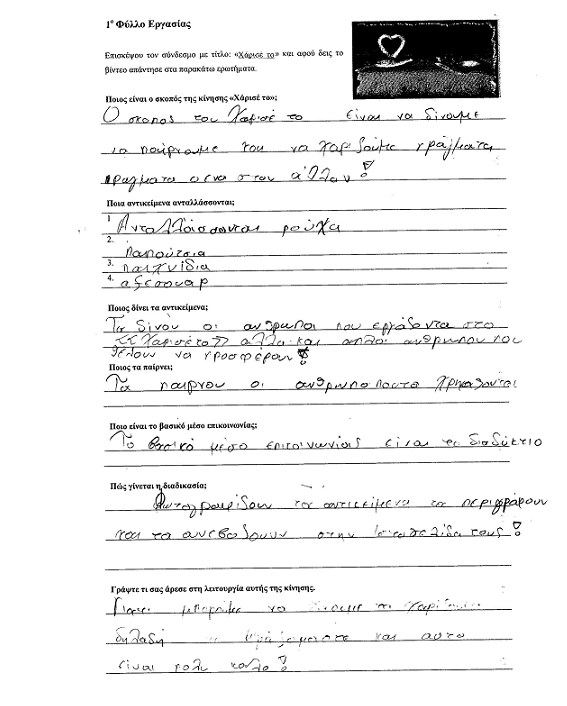 1º Φύλλο Εργασίας
Επισκέψου τον σύνδεσμο με τίτλο: «Χάρισέ το» και αφού δεις το
βίντεο απάντησε στα παρακάτω ερωτήματα.
Ποιος είναι ο σκοπός της κίνησης «Χάρισέ το»;
Ο σκοπός του Χαρισέ το είναι να δίνουμε
να παίρνουμε του να χαρίζουμε πράγματα
πραγματα ο ένα στον άλλον!
Ποια αντικείμενα ανταλλάσσονται;
1 Ανταλλάσσονται ρούχα
2. παπούτσια
3. παιχνίδια
4. αξεσουαρ
Ποιος δίνει τα αντικείμενα;
Τα δίνου οι ανθρωποι που εργάζοντα στο
«Χαρισέτο» αλλα και απλοι ανθρωποι που
θέλουν να προσφέρουν!
Ποιος τα παίρνει;
Τα παιρνου οι ανθρωποι που τα
Ποιο είναι το βασικό μέσο επικοινωνίας;
Το βασικό μέσο επικοινωνίας είναι το διαδύκτιο
Πώς γίνεται η διαδικασία;
Φωτογραφίζουν τα αντικείμενα τα περιγράφουν
και τα ανεβαζουν στην ιστοσελίδα τους!
Γράψτε τι σας άρεσε στη λειτουργία αυτής της κίνησης.
μπορούμε να δίνουμε
δηλαδή και αυτο
είναι πολι καλο!